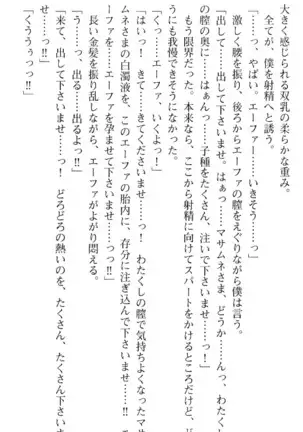 大きく感じられる双乳の柔らかな重み。
全てが、僕を射精へと誘う。
「っ……っ、やばい。エーファー……いきそう……っ」
激しく腰を振り、後ろからエーファの膣をえぐりながら僕は言う。
「出して……出して下さいませ……っ。はぁっ……マサムネさま、どうか……んっ、わたくし
の膣の奥に……はぁんっ……子種をたくさん、注いで下さいませ……っ！」
もう限界だった。本来なら、ここから射精に向けてスパートをかけるところだけど、ど
うにも我慢できそうになかった。
「くっ……エーファ、いくよっ！」
「はいっ！　きて……きてくださいませ……っ！　わたくしの膣で気持ちよくなったマサ
ムネさまの白濁液を、このエーファの胎内に、存分に注ぎ込んで下さいませ……！　エ
ーファを、エーファを孕ませて下さいませ……っ!!」
長い金髪を振り乱しながら、エーファがよがり悶える。
「う……っ、出る……出るよっ!!」
「来て、出して下さいませ……っ！　どろどろの熱いのを、たくさん、たくさん下さいま
せ……っ!!」
「くううぅっっ!!」